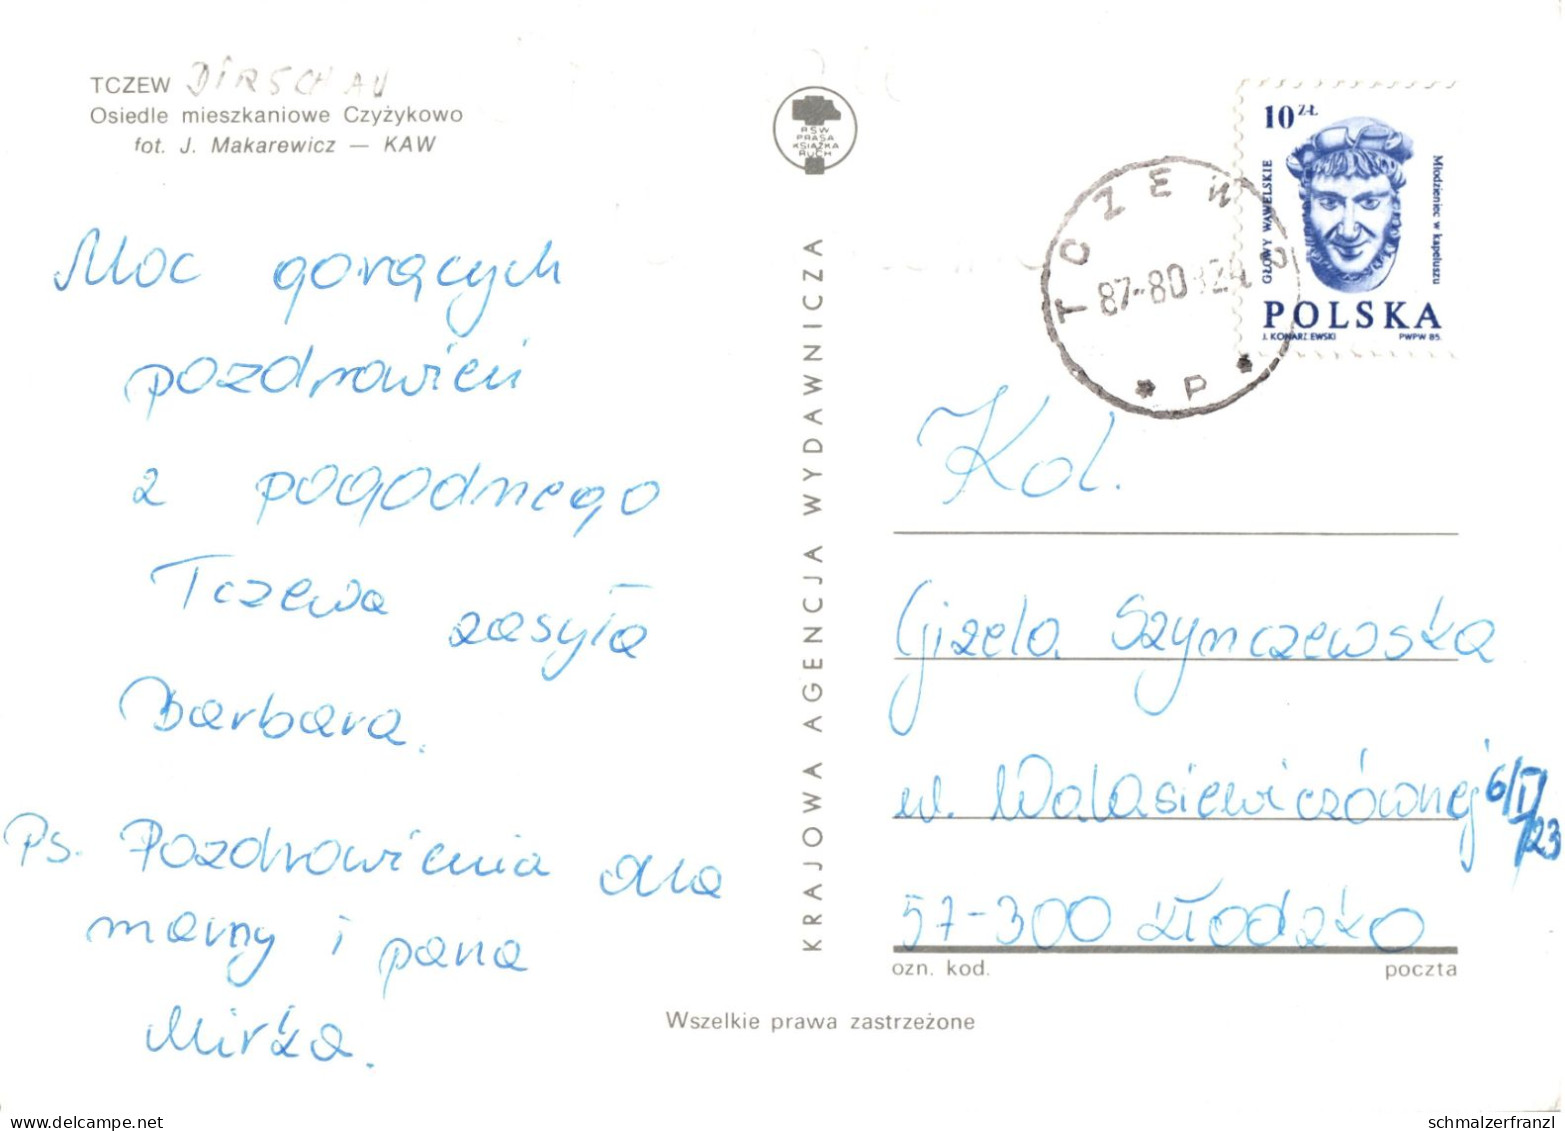 TCZEW DIRSCHAU
Osiedle mieszkaniowe Czyżykowo
fot. J. Makarewicz — KAW
Moc gorących
pozdrowień
z pogodnego
Tczewa zasyła
Barbara.
Ps. Pozdrowienia dla
mamy i pana
Mirka.
RSW
PRASA
KSIĄŻKA
RUCH
KRAJOWA AGENCJA WYDAWNICZA
TCZEW 2
P
10 ZŁ
GŁOWY WAWELSKIE
Młodzieniec w kapeluszu
POLSKA
J. KONARZEWSKI PWPW 85.
Kol.
Gizela Szymczewska
ul. Walasiewiczównej 6/I/23
57-300 Kłodzko
ozn. kod. poczta
Wszelkie prawa zastrzeżone
www.delcampe.net
schmalzerfranzl